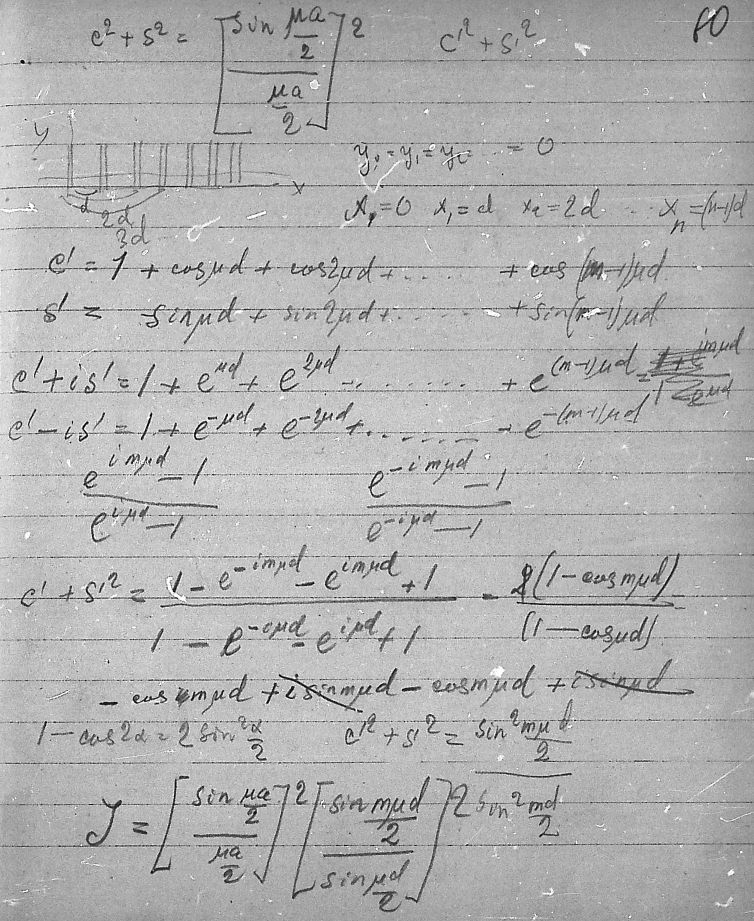 80
c² + s² = [ sin μa/2 / μa/2 ]² c'² + s'²
y x d 2d 3d
y₀ = y₁ = y₂ ... = 0
x₀ = 0 x₁ = d x₂ = 2d ... xₙ = (n-1)d
c' = 1 + cos μd + cos 2μd + ...... + cos (m-1)μd
s' = sin μd + sin 2μd + ...... + sin (m-1)μd
c' + is' = 1 + e^{μd} + e^{2μd} ........ + e^{(m-1)μd} =
c' - is' = 1 + e^{-μd} + e^{-2μd} + ........ + e^{-(m-1)μd}
e^{imμd} - 1 / e^{iμd} - 1 e^{-imμd} - 1 / e^{-iμd} - 1
c' + s'² = 1 - e^{-imμd} - e^{imμd} + 1 / 1 - e^{-iμd} - e^{iμd} + 1 = 2(1 - cos mμd) / (1 - cos μd) =
- cos mμd + i sin mμd - cos mμd + i sin μd
1 - cos 2α = 2 sin² α/2 c'² + s'² = sin² mμd/2 / sin² md/2
J = [ sin μa/2 / μa/2 ]² [ sin mμd/2 / sin μd/2 ]²